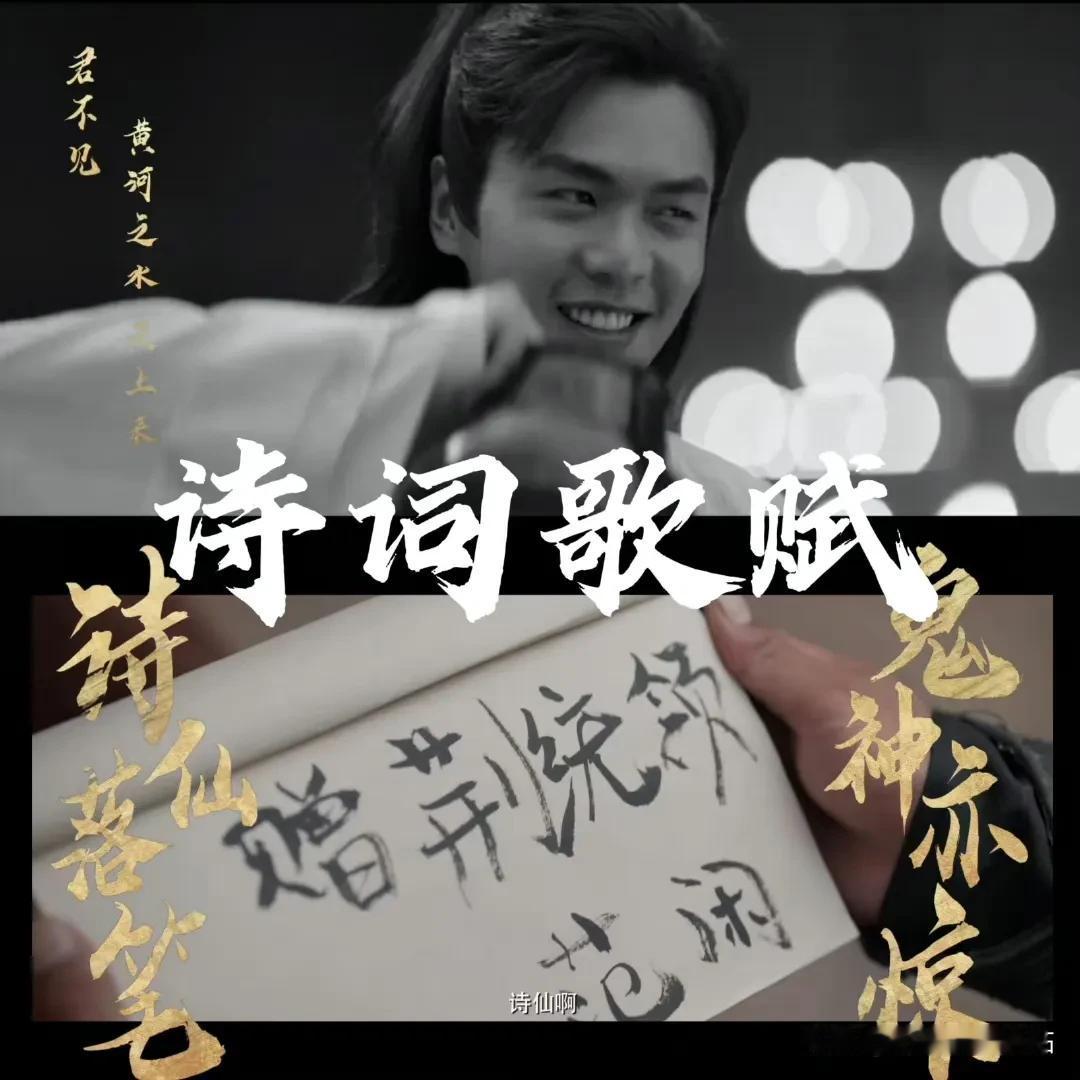 君不见
黄河之水天上来
诗词歌赋
诗仙落笔
鬼神亦惊
赠荆统领
范闲
诗仙啊